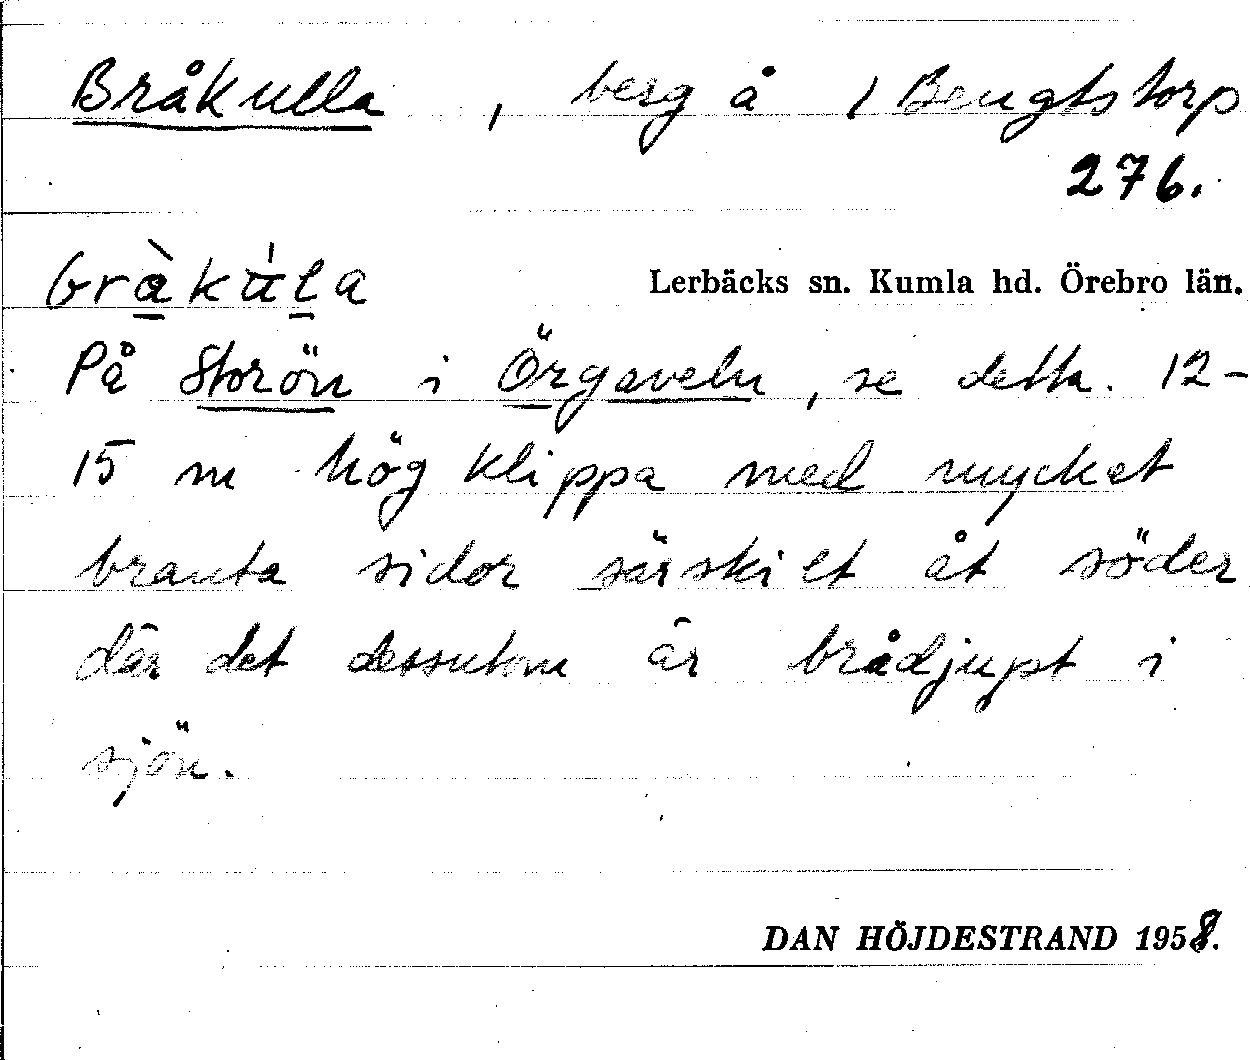 Bråkulla, berg å 1 Bengtstorp
276.
bràkùla
Lerbäcks sn. Kumla hd. Örebro län.
På Storön i Örgaveln, se detta. 12-
15 m hög klippa med mycket
branta sidor särskilt åt söder
där det dessutom är brådjupt i
sjön.
DAN HÖJDESTRAND 1958.